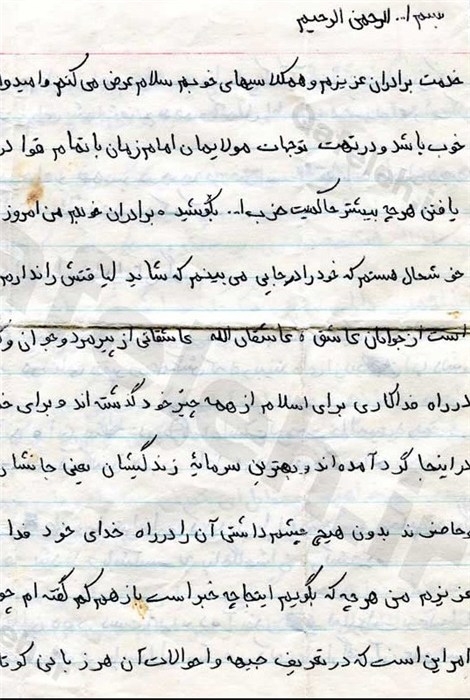 بسم ا... الرحمن الرحیم
خدمت برادران عزیزم و همکلاسیهای خوبم سلام عرض می کنم و امیدوا
خوب باشد و در تحت توجهات مولایمان امام زمان با تمام قوا در
یافتن هرچه بیشتر حاکمیت حزب ا... بکوشید ه برادران خوبم من امروز
خوشحال هستم که خود را در جایی می بینم که شاید لیاقتش را ندارم
است از جوانان عاشق ه عاشقان الله عاشقانی از پیرمرد و جوان و
در راه فداکاری برای اسلام از همه چیز خود گذشته اند و برای
در اینجا گرد آمده اند و بهترین سرمایهٔ زندگیشان یعنی جانشان
وحاضرند بدون هیچ چشم داشتی آن را در راه خدای خود فدا
عزیزم من هرچه که بگویم اینجا چه خبر است باز هم کم گفته ام
امر این است که در تعریف جبهه و احوالات آن هر زبانی کوتا